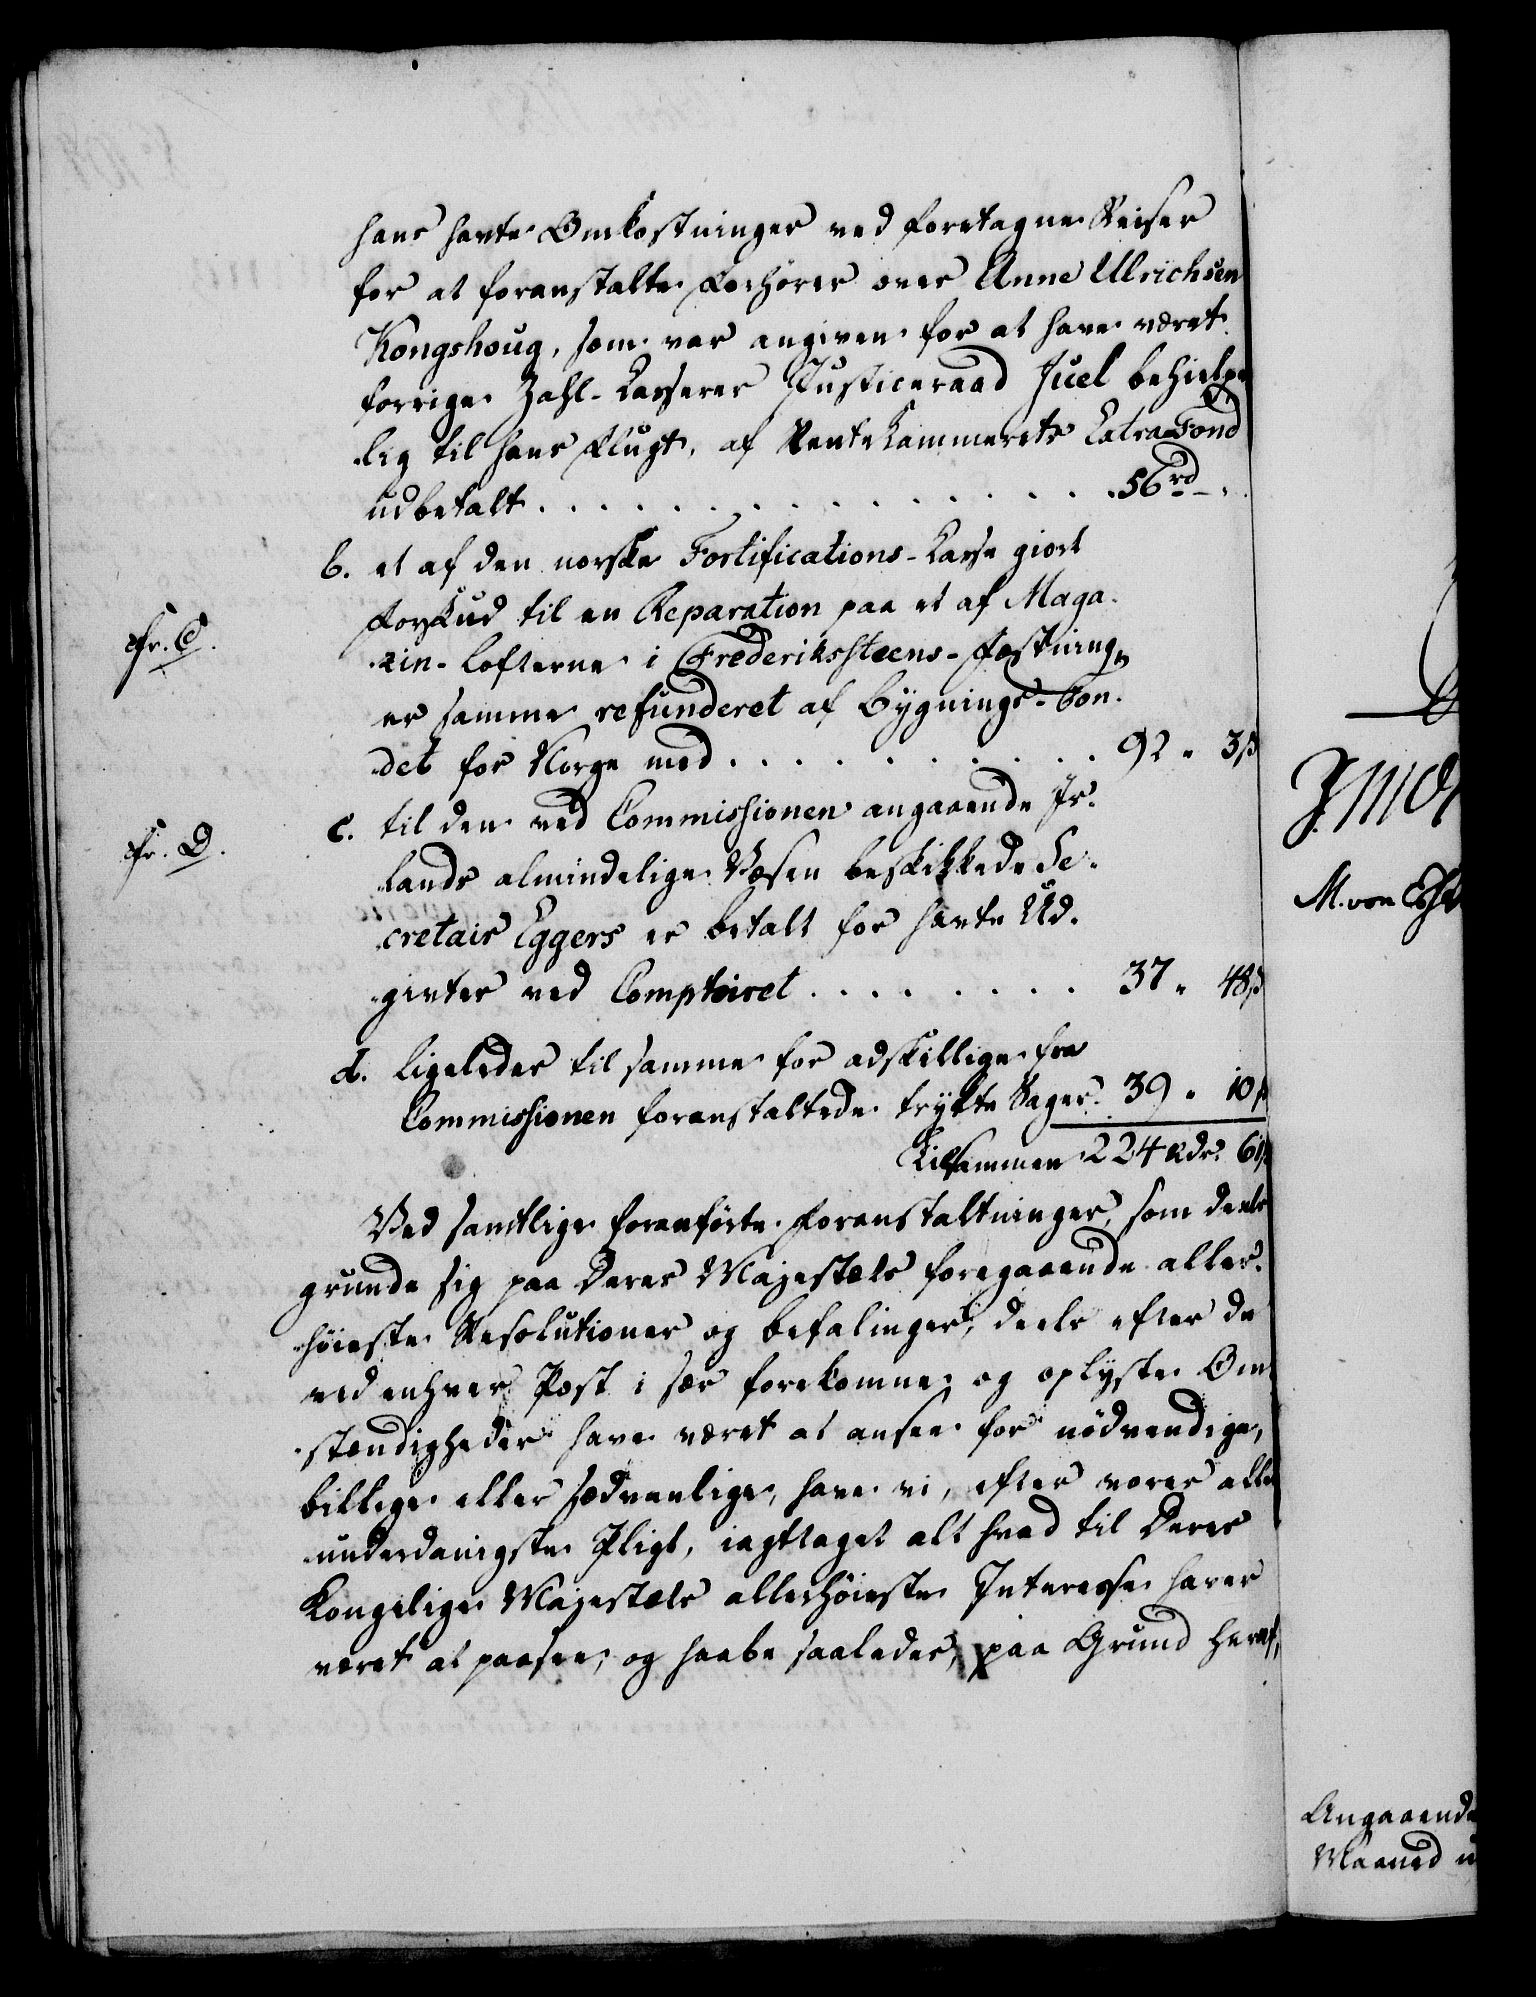 hans havte Omkostninger ved foretagne Reiser
for at foranstalte Forhörer over Anne Ulrichsen
Kongshoug, som var angiven for at have været
forrige Zahl-Casserer Justiceraad Juel behielpe
lig til hans Flugt, af Rentekammerets Extra Fond
udbetalt . . . . . . . . . . . . . . . 56 rd - .
b. et af den norske Fortifications-Casse giort
Forskud til en Reparation paa et af Maga-
cfr. C.
zin-Lofterne i Frederikssteens-Fæstning,
er samme refunderet af Bygnings-Fon-
det for Norge med . . . . . . . . . . 92 " 3 ß
c. til den ved Commissionen angaaende Is-
cfr. D.
lands almindelige Væsen beskikkede Se-
cretair Eggers er betalt for havte Ud-
givter ved Comptoiret . . . . . . . . 37 " 48 ß
d. ligeledes til samme for adskillige fra
Commissionen foranstaltede trykte Sager. 39 " 10 ß
Tilsammen 224 Rdr. 61 ß
Ved samtlige foranförte Foranstaltninger, som deels
grunde sig paa Deres Majestæts foregaaende aller-
höieste Resolutioner og Befalinger, deels efter de
ved enhver Post i sær forekomne og oplyste Om-
stændigheder have været at ansee for nödvendige,
billige eller sædvanlige, have vi, efter vores aller
underdanigste Pligt, iagttaget alt hvad til Deres
Kongelige Majestæts allerhöieste Interesse haver
været at paasee, og haabe saaledes, paa Grund heraf,
M. von
Angaaende
Maaned